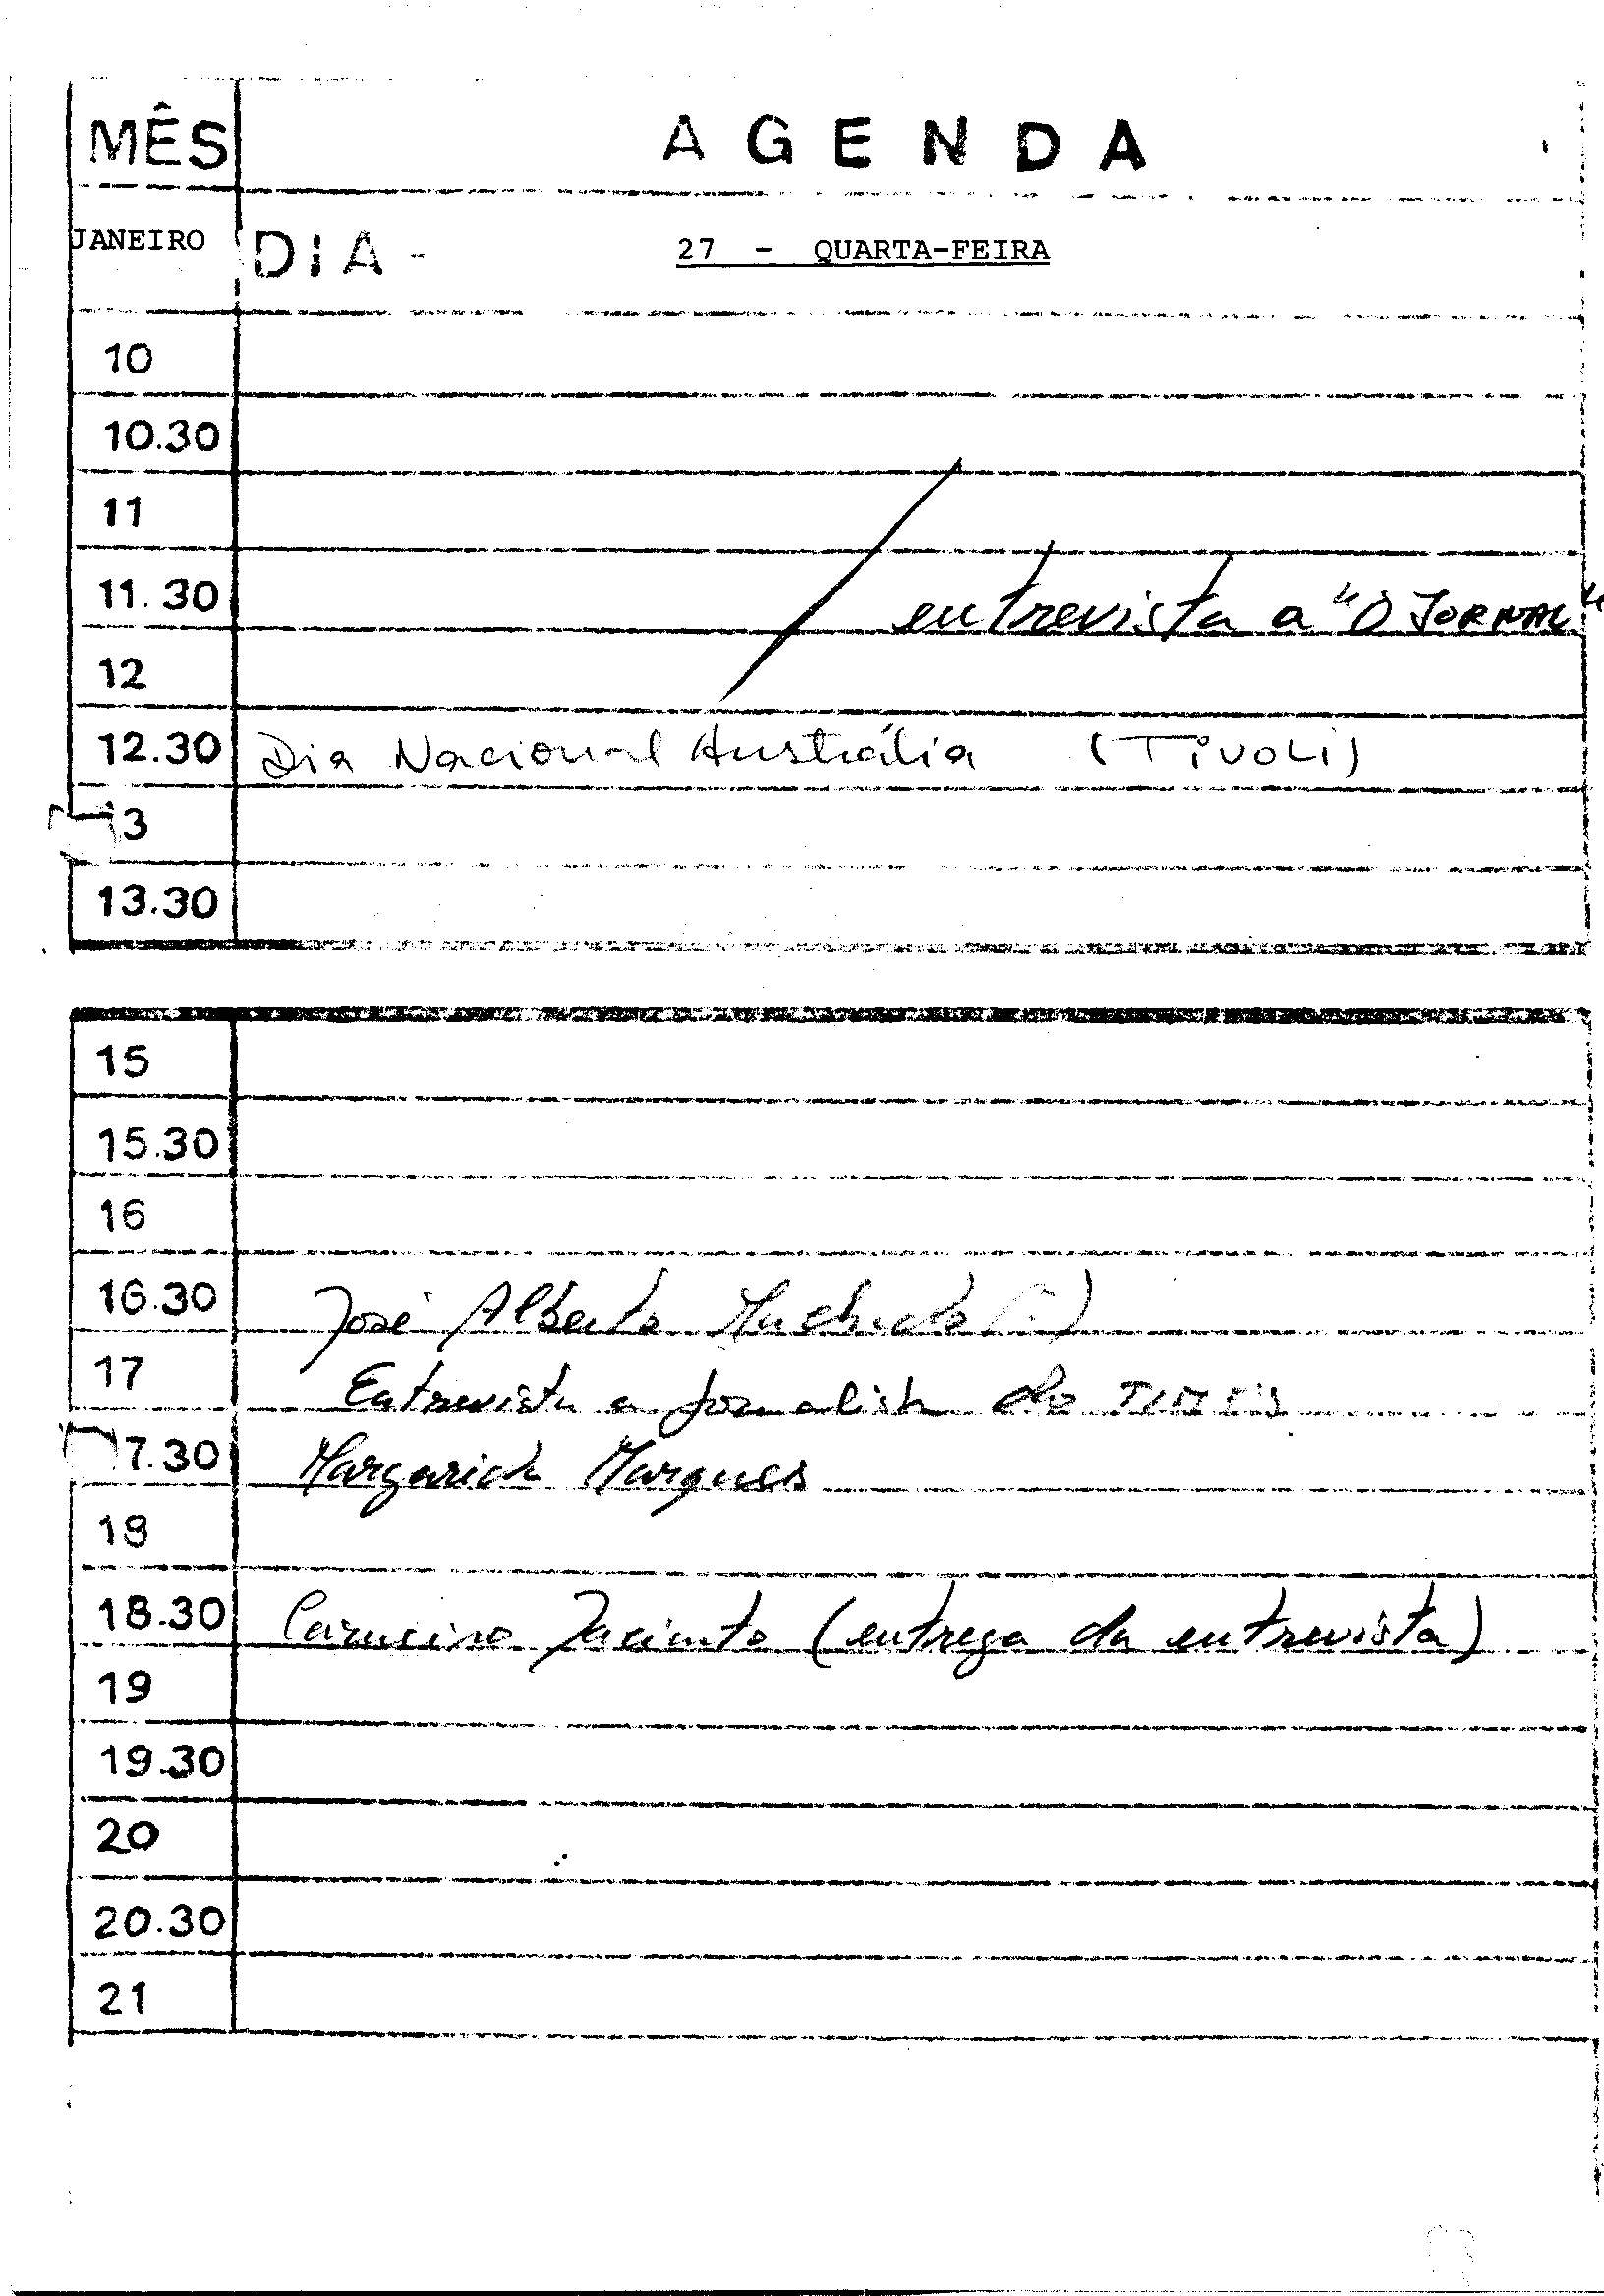 MÊS AGENDA
JANEIRO DIA - 27 - QUARTA-FEIRA
10
10.30
11
11.30 entrevista a "O JORNAL"
12
12.30 Dia Nacional Austrália (TIVOLI)
13
13.30
15
15.30
16
16.30 José Alberto Machado
17 Entrevista a jornalista do TIMES
17.30 Margarida Marques
18
18.30 Jacinto (entrega da entrevista)
19
19.30
20
20.30
21